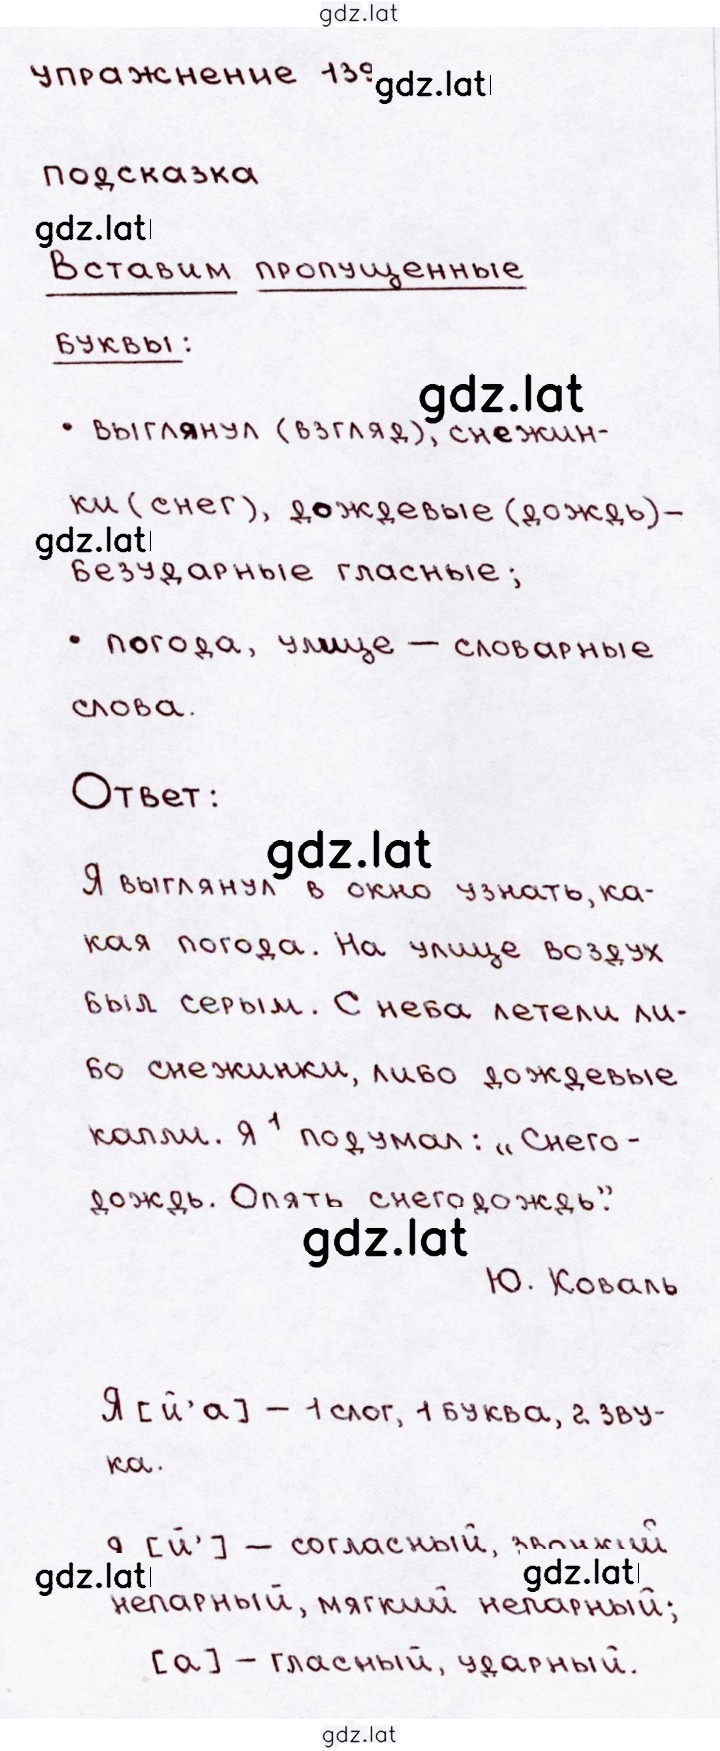 gdz.lat
упражнение 139 gdz.lat
подсказка
gdz.lat
Вставим пропущенные
буквы:
gdz.lat
• выглянул (взгляд), снежин-
ки (снег), дождевые (дождь) –
gdz.lat
безударные гласные;
• погода, улице – словарные
слова.
Ответ:
gdz.lat
Я выглянул в окно узнать, ка-
кая погода. На улице воздух
был серым. С неба летели ли-
бо снежинки, либо дождевые
капли. Я¹ подумал: „Снего-
дождь. Опять снегодождь”.
gdz.lat
Ю. Коваль
Я [й’а] – 1 слог, 1 буква, 2 зву-
ка.
я [й’] – согласный, звонкий
gdz.lat gdz.lat
непарный, мягкий непарный;
[а] – гласный, ударный.
gdz.lat